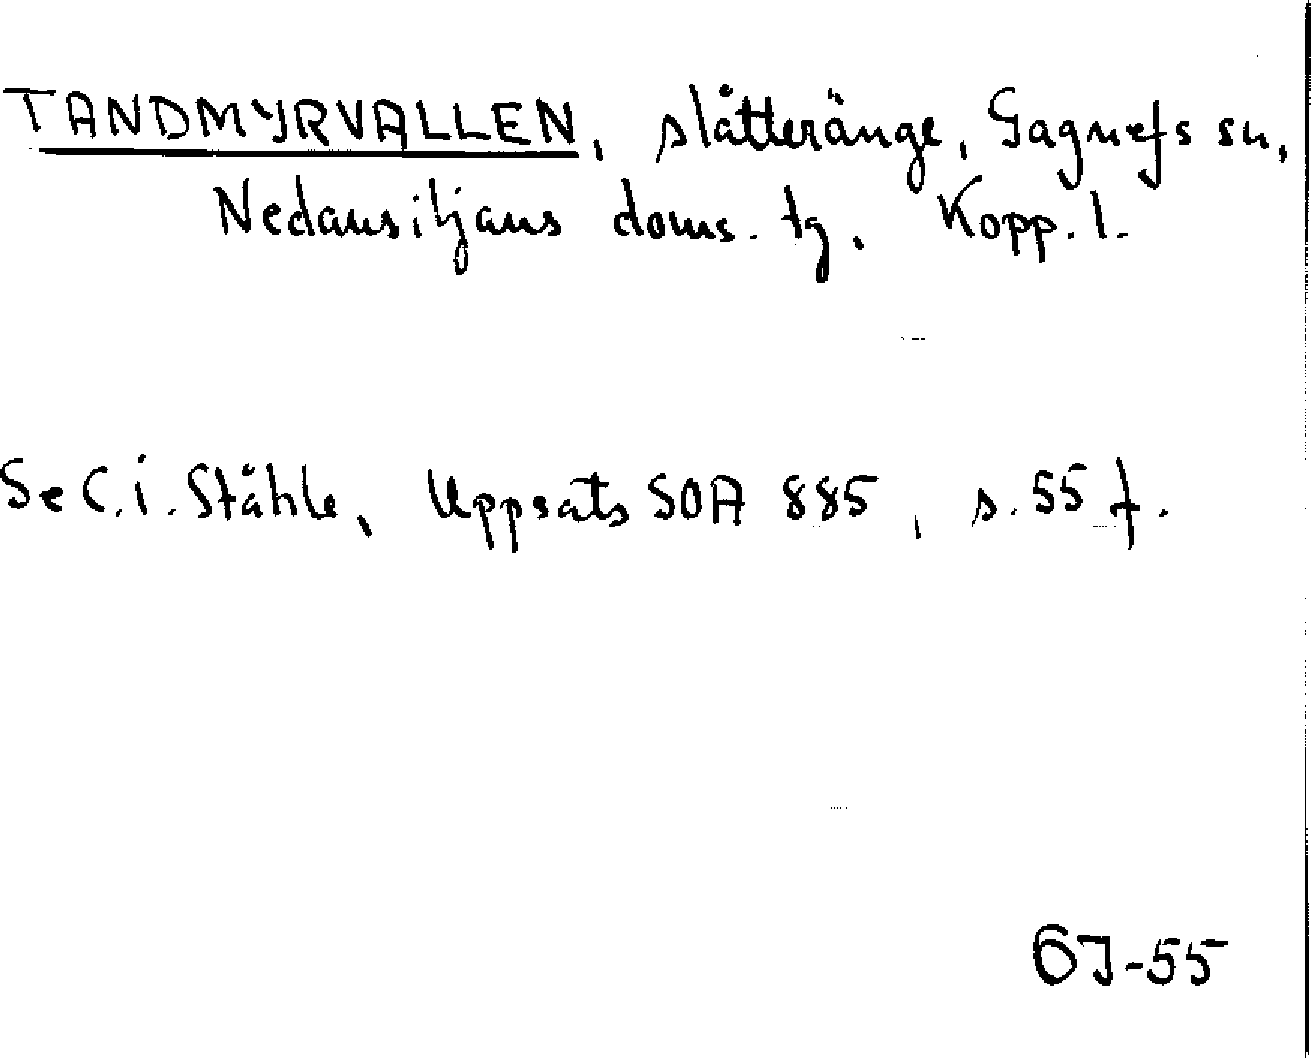 TANDMYRVALLEN, slåtteränge, Gagnefs sn,
Nedansiljans doms. tg. Kopp. l.
Se C. i. Ståhle, Uppsats SOA 885, s. 55 f.
GJ-55